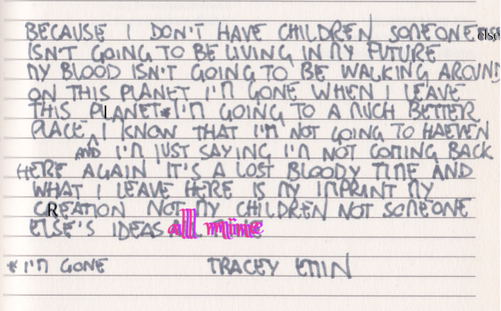 BECAUSE I DON'T HAVE CHILDREN SOMEONE else
ISN'T GOING TO BE LIVING IN MY FUTURE
MY BLOOD ISN'T GOING TO BE WALKING AROUND
ON THIS PLANET I'M GONE WHEN I LEAVE
THIS PLANET* I'M GOING TO A MUCH BETTER
PLACE ^ I KNOW THAT I'M NOT GOING TO HAEVEN
AND I'M JUST SAYING I'M NOT COMING BACK
HERE AGAIN IT'S A LOST BLOODY TIME AND
WHAT I LEAVE HERE IS MY IMPRANT MY
CREATION NOT MY CHILDREN NOT SOMEONE
ELSE'S IDEAS all mine
* I'M GONE TRACEY EMIN